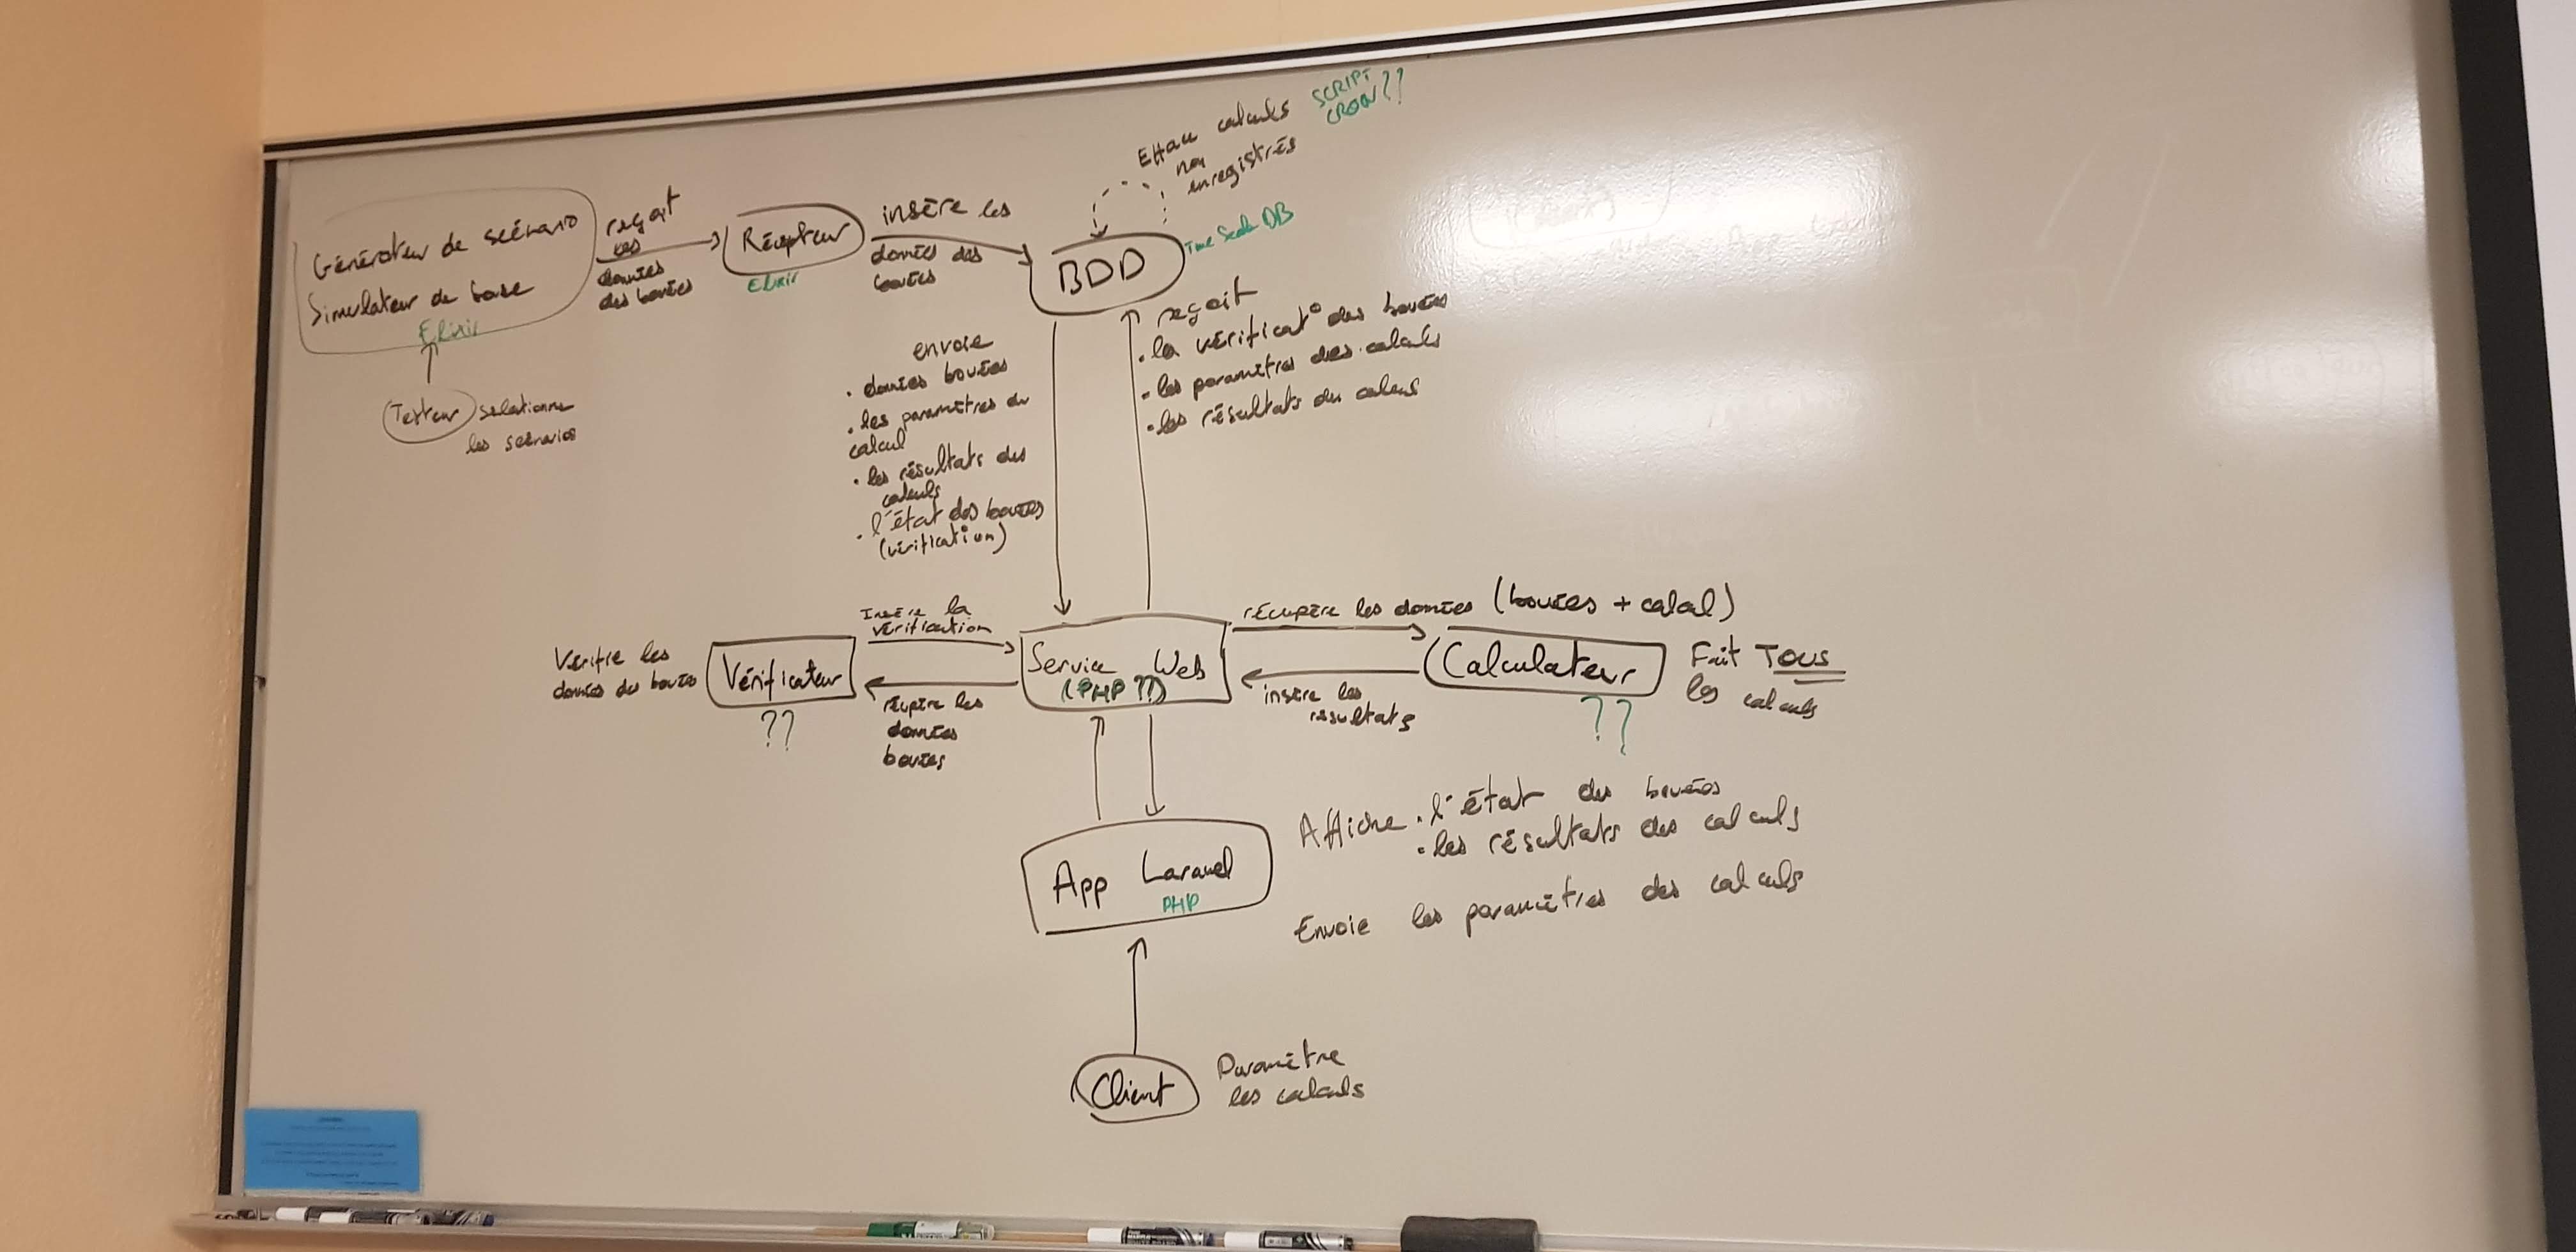 Efface calculs
non
enregistrés
SCRIPT
CRON??
Générateur de scénario
Simulateur de base
Elixir
Testeur
selectionne
les scénarios
reçoit
les
données
des bouées
Récepteur
Elixir
insère les
données des
bouées
BDD
Time Scale DB
envoie
• données bouées
• les paramètres du
calcul
• les résultats des
calculs
• l'état des bouées
(vérification)
reçoit
• la vérificat° des bouées
• les paramètres des calculs
• les résultats du calculs
Vérifie les
données des bouées
Vérificateur
??
Insère la
vérification
récupère les
données
bouées
Service Web
(PHP ??)
récupère les données (bouées + calcul)
insère les
résultats
Calculateur
??
Fait TOUS
les calculs
App Laravel
PHP
Affiche • l'état des bouées
• les résultats des calculs
Envoie les paramètres des calculs
Client
Paramètre
les calculs